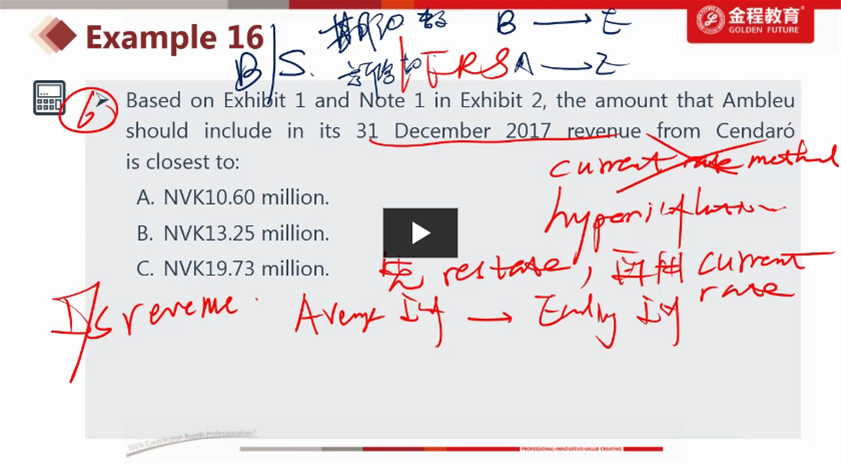 Example 16
B/S.
B → E
IFRS A → E
金程教育
GOLDEN FUTURE
6
Based on Exhibit 1 and Note 1 in Exhibit 2, the amount that Ambleu
should include in its 31 December 2017 revenue from Cendaró
is closest to:
current rate method
A. NVK10.60 million.
B. NVK13.25 million.
C. NVK19.73 million.
hyperinflation
先 restate, 再用 current
rate
I/S revenue.
Average → Ending
100% Contribution Breeds Professionalism!
PROFESSIONAL·INNOVATIVE·VALUE CREATING